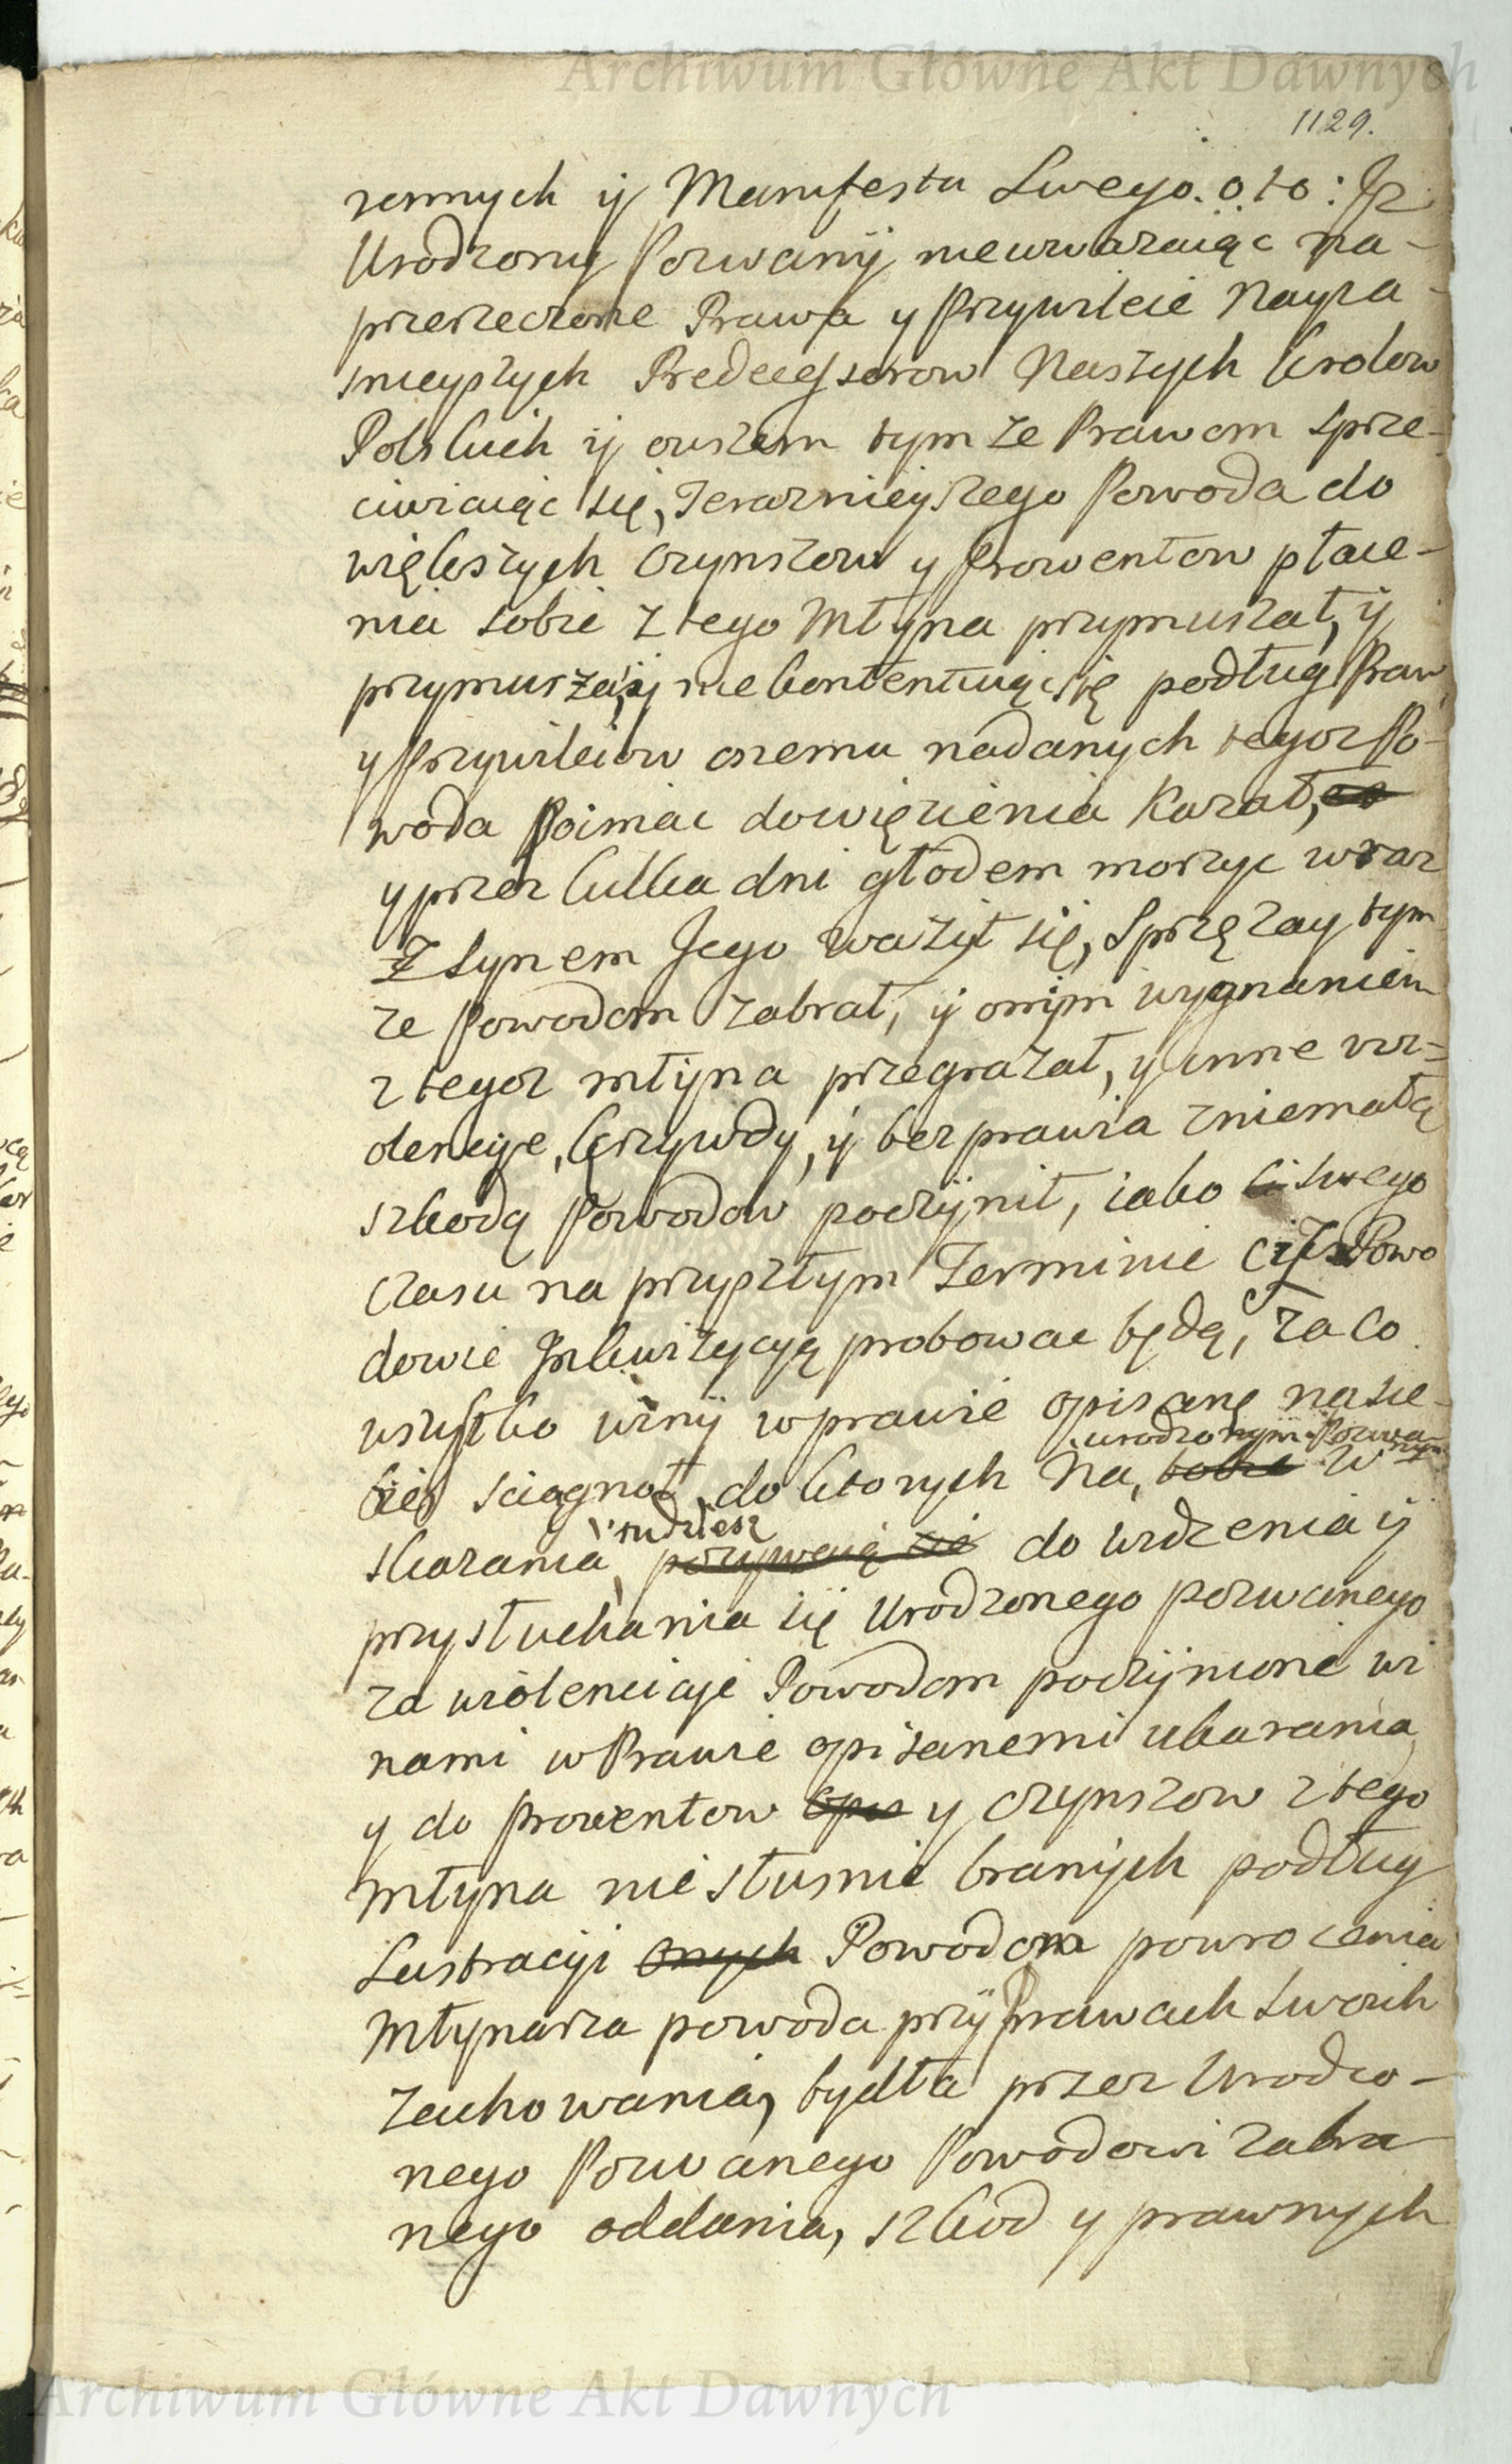 Archiwum Główne Akt Dawnych
1129.
rennych ij Manifestu Swego. o to: Jz
Urodzony Pozwanij nieuwazaiąc na-
przerzeczone Prawa y Przywileie Nayia-
snieyszych Predecessorow Naszych Krolow
Polskich ij owszem tym ze Prawom sprze-
ciwiaiąc się, Terazniejszego Powoda do
większych Czynszow y Prowentow płace-
nia sobie z tego Młyna przymuszał, ij
przymusza, ij nie kontentuiąc się podług Praw
y Przywileiow onemu nadanych tegoz Po-
woda Poimac do więzienia Kazał,
y przez kilka dni głodem morzyc wraz
Z synem Jego ważył się, Sprzęzay tym
ze Powodom zabrał, ij onym wygnaniem
z tegoz młijna przegrazał, y inne vio-
lencije, krzywdy, ij bezprawia z niemałą
szkodą Powodow poczijnił, iako swego
czasu na przyszłym Terminie ciż Powo
dowie Inkwizycyą probowac będą, za co
wszystko winij w prawie opisane na sie-
bie sciągnoł, do ktorych Na, urodzonym Pozwa-
nym w
skarania, tudziesz do widzenia ij
przysłuchania się Urodzonego pozwanego
za violencije Powodom poczijnione wi
nami w Prawie opisanemi ukarania,
y do Prowentow y czynszow z tego
młyna nie słusnie branijch podług
Lustracyi onych Powodom powrocenia
Młynarza powoda przij Prawach swoich
zachowania, bydła przez Urodzo-
nego Pozwanego Powodowi zabra-
nego oddania, szkod y prawnych
Archiwum Główne Akt Dawnych